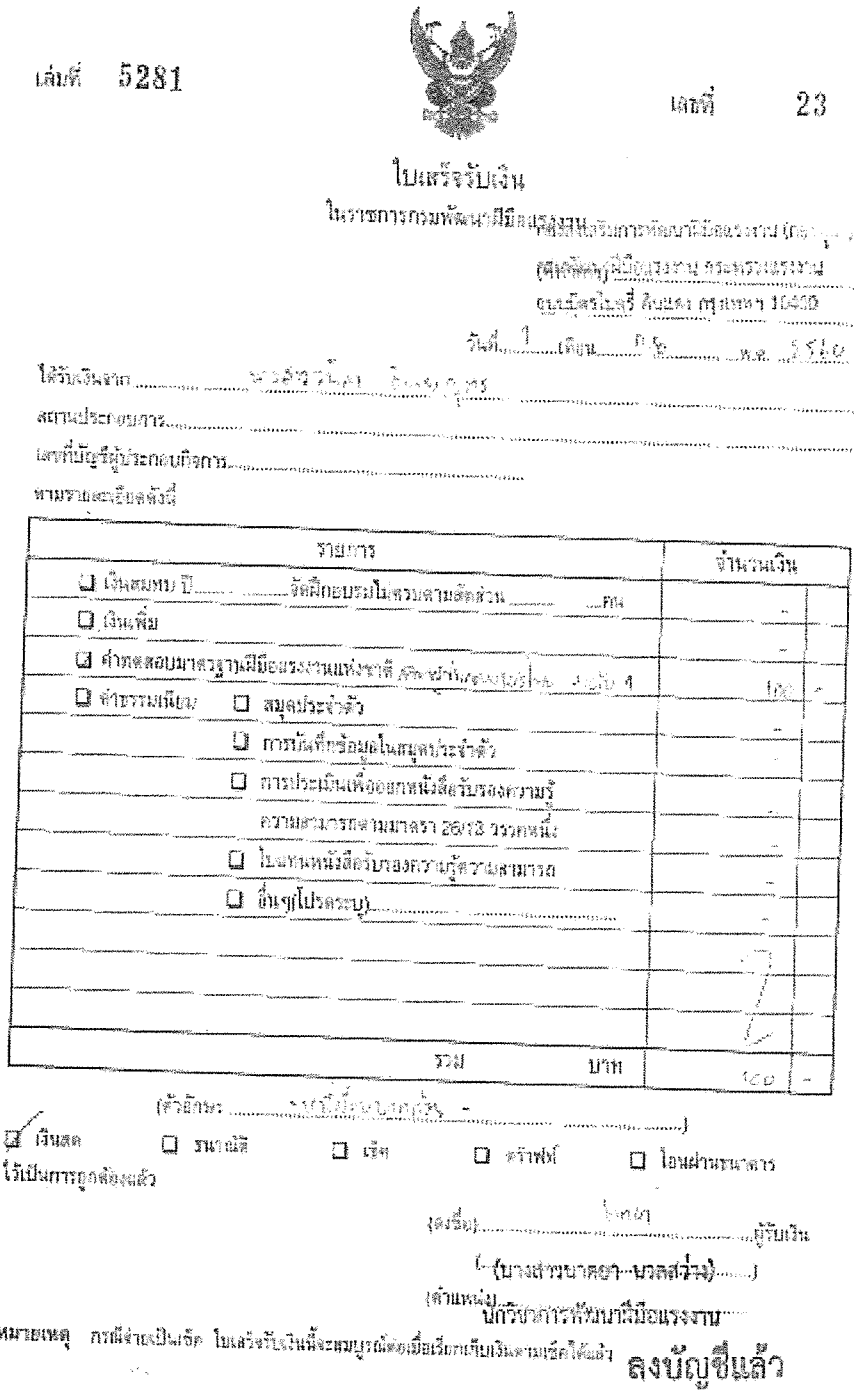 เล่มที่ 5281
เลขที่ 23
ใบเสร็จรับเงิน
ในราชการกรมพัฒนาฝีมือแรงงาน
กองส่งเสริมการพัฒนาฝีมือแรงงาน
กรมพัฒนาฝีมือแรงงาน กระทรวงแรงงาน
ถนนมิตรไมตรี ดินแดง กรุงเทพฯ 10400
วันที่ 1 เดือน พ.ศ. 2560
ได้รับเงินจาก
สถานประกอบการ
เลขที่บัญชีผู้ประกอบกิจการ
ตามรายละเอียดดังนี้
รายการ จำนวนเงิน
เงินสมทบ ปี จัดฝึกอบรมไม่ครบตามสัดส่วน คน -
เงินเพิ่ม -
ค่าทดสอบมาตรฐานฝีมือแรงงานแห่งชาติ ระดับ 1 100 -
ค่าธรรมเนียม สมุดประจำตัว -
การบันทึกข้อมูลในสมุดประจำตัว -
การประเมินเพื่อออกหนังสือรับรองความรู้ -
ความสามารถตามมาตรา 26/13 วรรคหนึ่ง
ใบแทนหนังสือรับรองความรู้ความสามารถ -
อื่นๆ(โปรดระบุ) -
รวม บาท 100 -
(ตัวอักษร หนึ่งร้อยบาทถ้วน - )
เงินสด ธนาณัติ เช็ค ดร๊าฟท์ โอนผ่านธนาคาร
ไว้เป็นการถูกต้องแล้ว
(ลงชื่อ) ผู้รับเงิน
(นางสาวนาตยา นวลสว่าง)
(ตำแหน่ง) นักวิชาการพัฒนาฝีมือแรงงาน
หมายเหตุ กรณีจ่ายเป็นเช็ค ใบเสร็จรับเงินนี้จะสมบูรณ์ต่อเมื่อเรียกเก็บเงินตามเช็คได้แล้ว
ลงบัญชีแล้ว